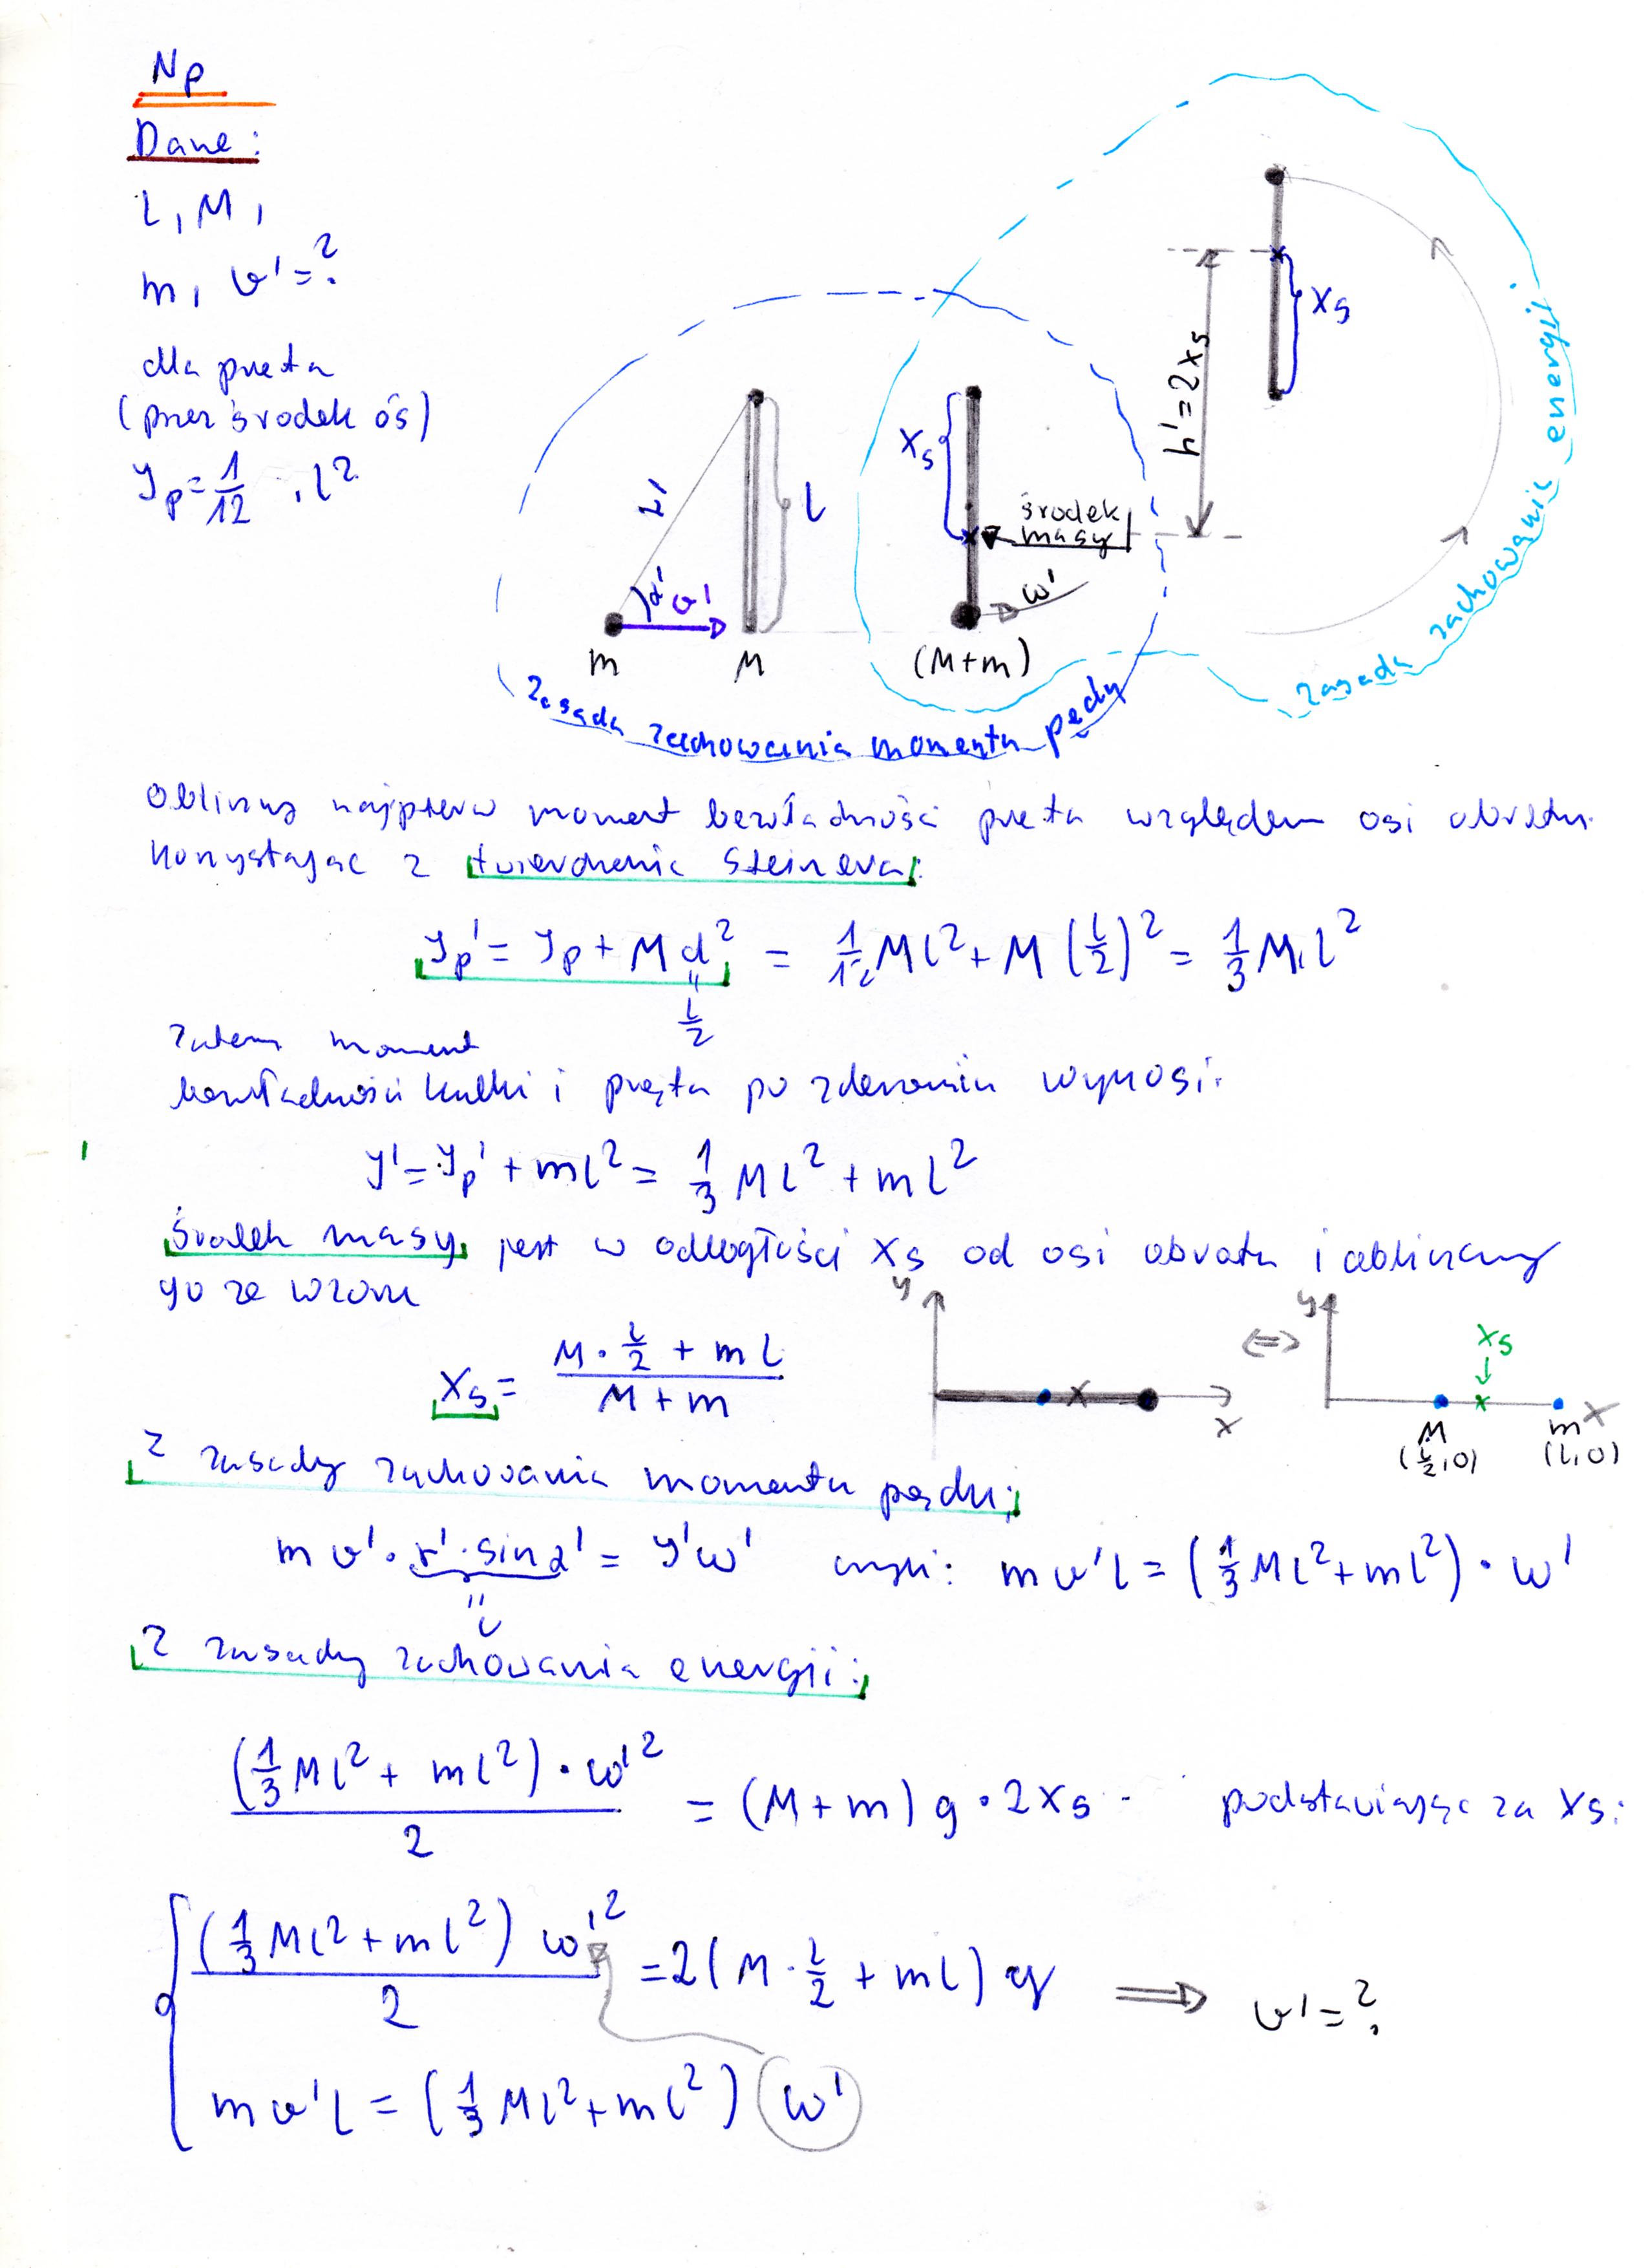 Np
Dane:
l, M,
m, v' = ?
dla pręta
(przez środek oś)
y_p = 1/12 · l²
r'
α'
v'
l
m
M
x_s
środek
masy
ω'
(M+m)
h' = 2x_s
x_s
Zasada zachowania momentu pędu
zasada zachowanie energii
obliczmy najpierw moment bezwładności pręta względem osi obrotu
korzystając z twierdzenia Steinera:
y_p' = y_p + M d² = 1/12 M l² + M (l/2)² = 1/3 M l²
" l/2
Zatem moment
bezwładności kulki i pręta po zderzeniu wynosi:
y' = y_p' + m l² = 1/3 M l² + m l²
Środek masy jest w odległości x_s od osi obrotu i obliczamy
go ze wzoru
x_s = (M · l/2 + m l) / (M + m)
y
x
⇔
y
x_s
↓
x
M
(l/2, 0)
m
(l, 0)
Z zasady zachowania momentu pędu:
m v' · r' · sin α' = y' ω' czyli: m v' l = (1/3 M l² + m l²) · ω'
" l
Z zasady zachowania energii:
(1/3 M l² + m l²) · ω'² / 2 = (M + m) g · 2x_s podstawiając za x_s:
(1/3 M l² + m l²) ω'² / 2 = 2(M · l/2 + m l) g ⟹ v' = ?
m v' l = (1/3 M l² + m l²) ω'